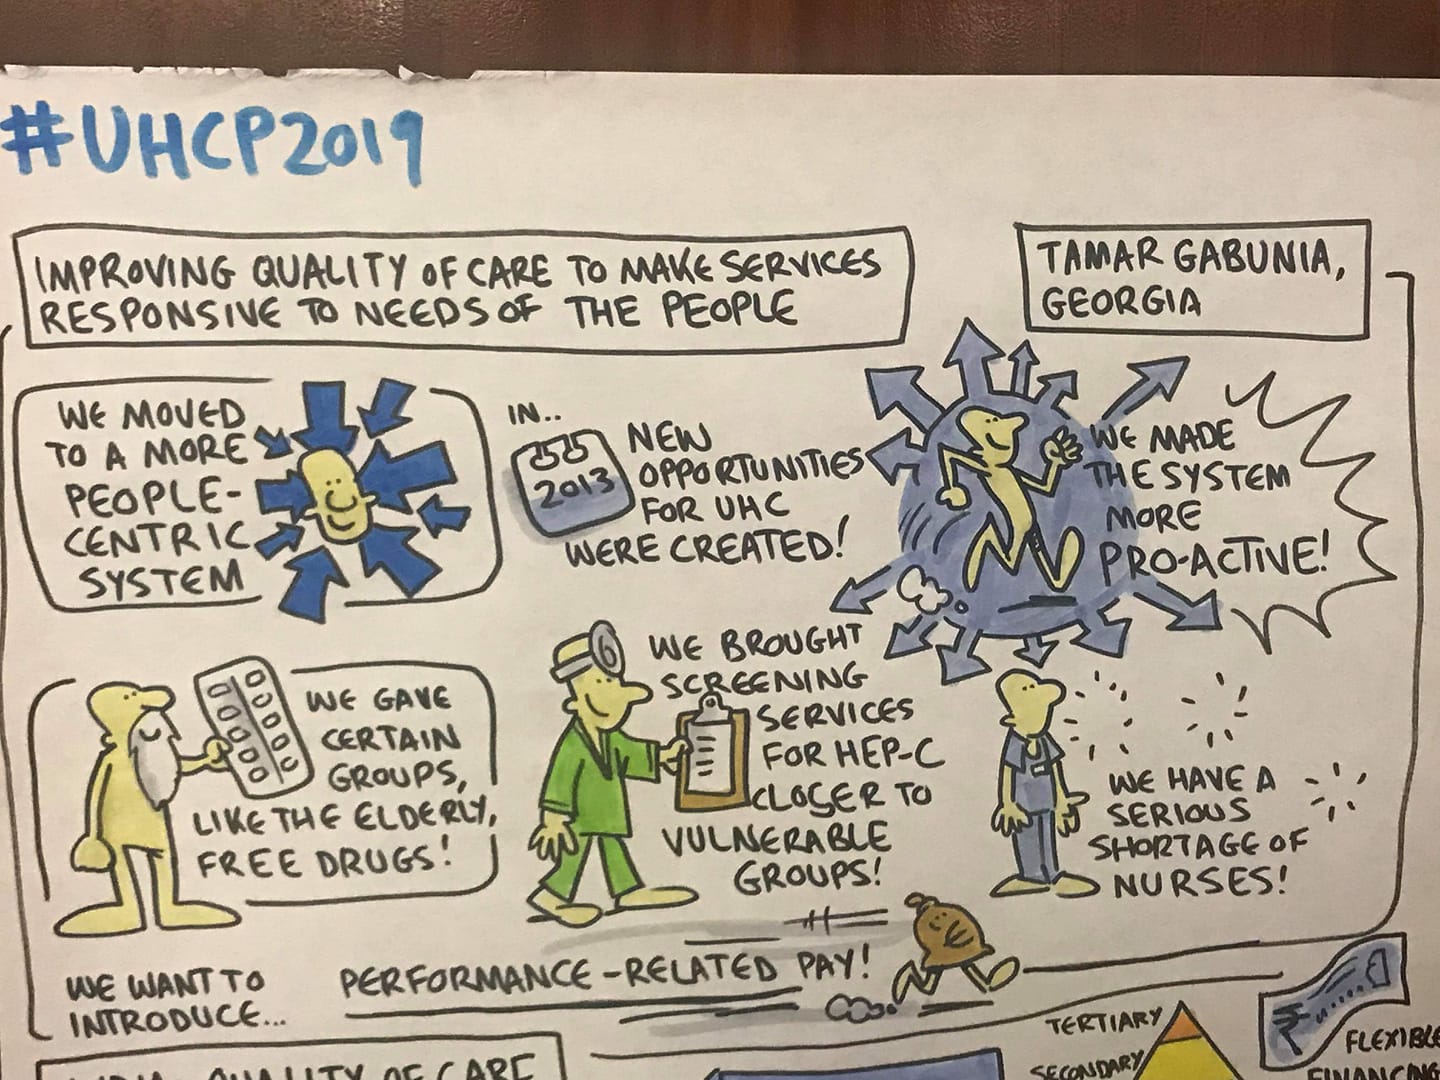 #UHCP2019
IMPROVING QUALITY OF CARE TO MAKE SERVICES
RESPONSIVE TO NEEDS OF THE PEOPLE
TAMAR GABUNIA,
GEORGIA
WE MOVED
TO A MORE
PEOPLE-
CENTRIC
SYSTEM
IN..
2013
NEW
OPPORTUNITIES
FOR UHC
WERE CREATED!
WE MADE
THE SYSTEM
MORE
PRO-ACTIVE!
WE GAVE
CERTAIN
GROUPS,
LIKE THE ELDERLY,
FREE DRUGS!
WE BROUGHT
SCREENING
SERVICES
FOR HEP-C
CLOSER TO
VULNERABLE
GROUPS!
WE HAVE A
SERIOUS
SHORTAGE OF
NURSES!
WE WANT TO
INTRODUCE...
PERFORMANCE-RELATED PAY!
TERTIARY
SECONDARY
₹
FLEXIBLE
FINANCING
QUALITY OF CARE